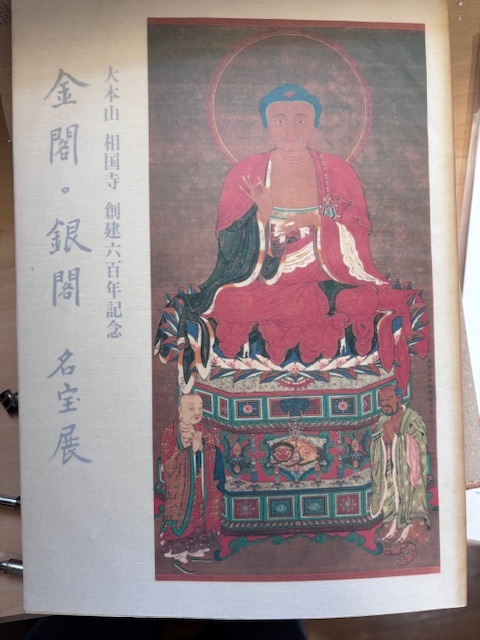 大本山 相国寺 創建六百年記念
金閣。銀閣 名宝展